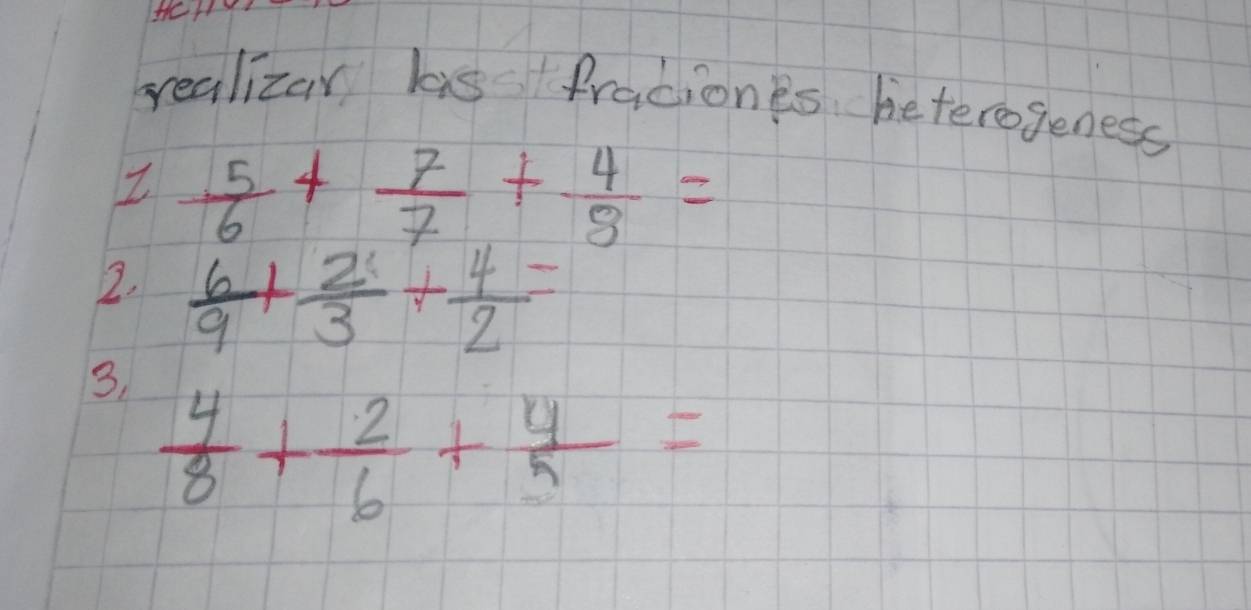 realizar las fraciones heterogeness
1 5/6 + 7/7 + 4/8 =
2. 6/9 + 2/3 + 4/2 =
3. 4/8 + 2/6 + 4/5 =